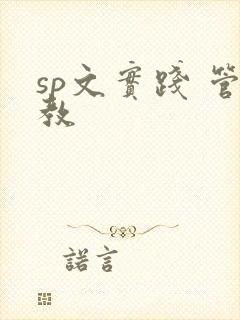 sp文實踐 管
教
諾言